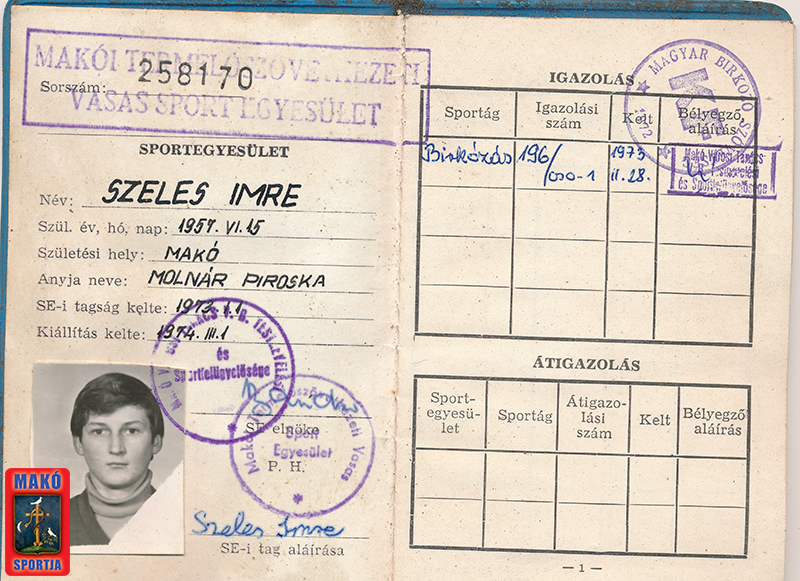 MAKÓI TERMELŐSZÖVETKEZETI
VASAS SPORTEGYESÜLET
Sorszám: 258170
SPORTEGYESÜLET
Név: SZELES IMRE
Szül. év, hó, nap: 1957. VI. 15
Születési hely: MAKÓ
Anyja neve: MOLNÁR PIROSKA
SE-i tagság kelte: 1973. I. 1
Kiállítás kelte: 1974. III. 1
és
Sportfelügyelősége
SE elnöke
Sport
Egyesület
P. H.
Szeles Imre
SE-i tag aláírása
MAKÓ
SPORTJA
IGAZOLÁS
MAGYAR BIRKÓZÓ
1972
Sportág
Igazolási
szám
Kelt
Bélyegző,
aláírás
Birkózás
196/
030-1
1973
II. 28.
Makó Városi Tanács
és Sportfelügyelősége
ÁTIGAZOLÁS
Sport-
egyesü-
let
Sportág
Átigazo-
lási
szám
Kelt
Bélyegző
aláírás
— 1 —